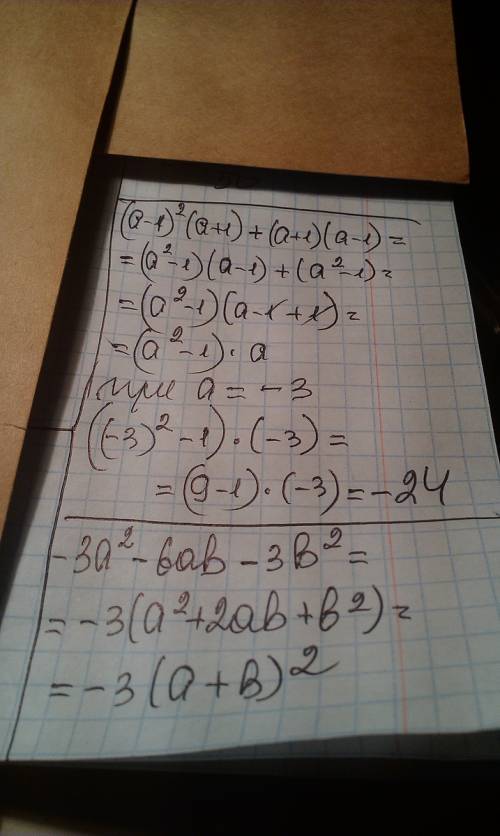 (a-1)²(a+1)+(a+1)(a-1)=
=(a²-1)(a-1)+(a²-1)=
=(a²-1)(a-1+1)=
=(a²-1)·a
при a=-3
((-3)²-1)·(-3)=
=(9-1)·(-3)=-24
-3a²-6ab-3b²=
=-3(a²+2ab+b²)=
=-3(a+b)²